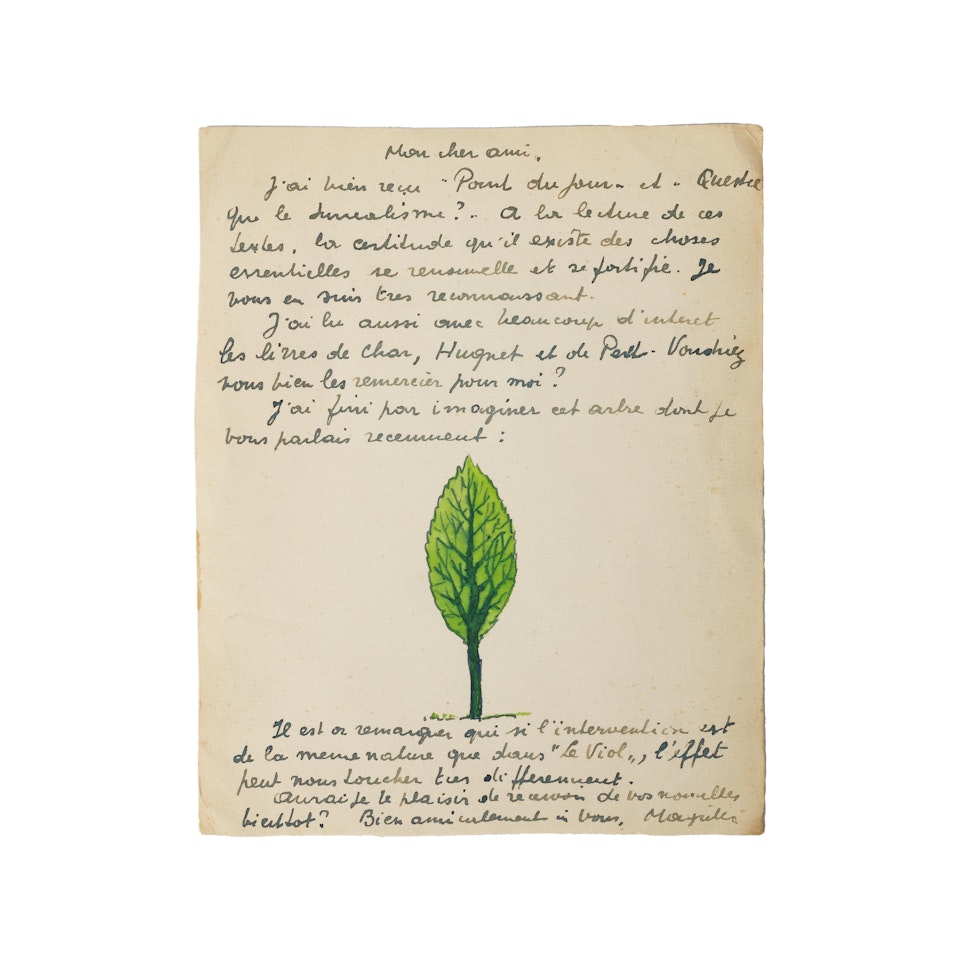 Mon cher ami,
J'ai bien reçu "Point du jour" et "Qu'est ce
que le surrealisme?". A la lecture de ces
textes, la certitude qu'il existe des choses
essentielles se renouvelle et se fortifie. Je
vous en suis très reconnaissant.
J'ai lu aussi avec beaucoup d'interet
les livres de Char, Hugnet et de Peret. Voudriez
vous bien les remercier pour moi?
J'ai fini par imaginer cet arbre dont je
vous parlais recemment :
Il est a remarquer qui si l'intervention est
de la meme nature que dans "Le Viol", l'effet
peut nous toucher tres differemment.
Aurai je le plaisir de recevoir de vos nouvelles
bientot? Bien amicalement à vous, Magritte